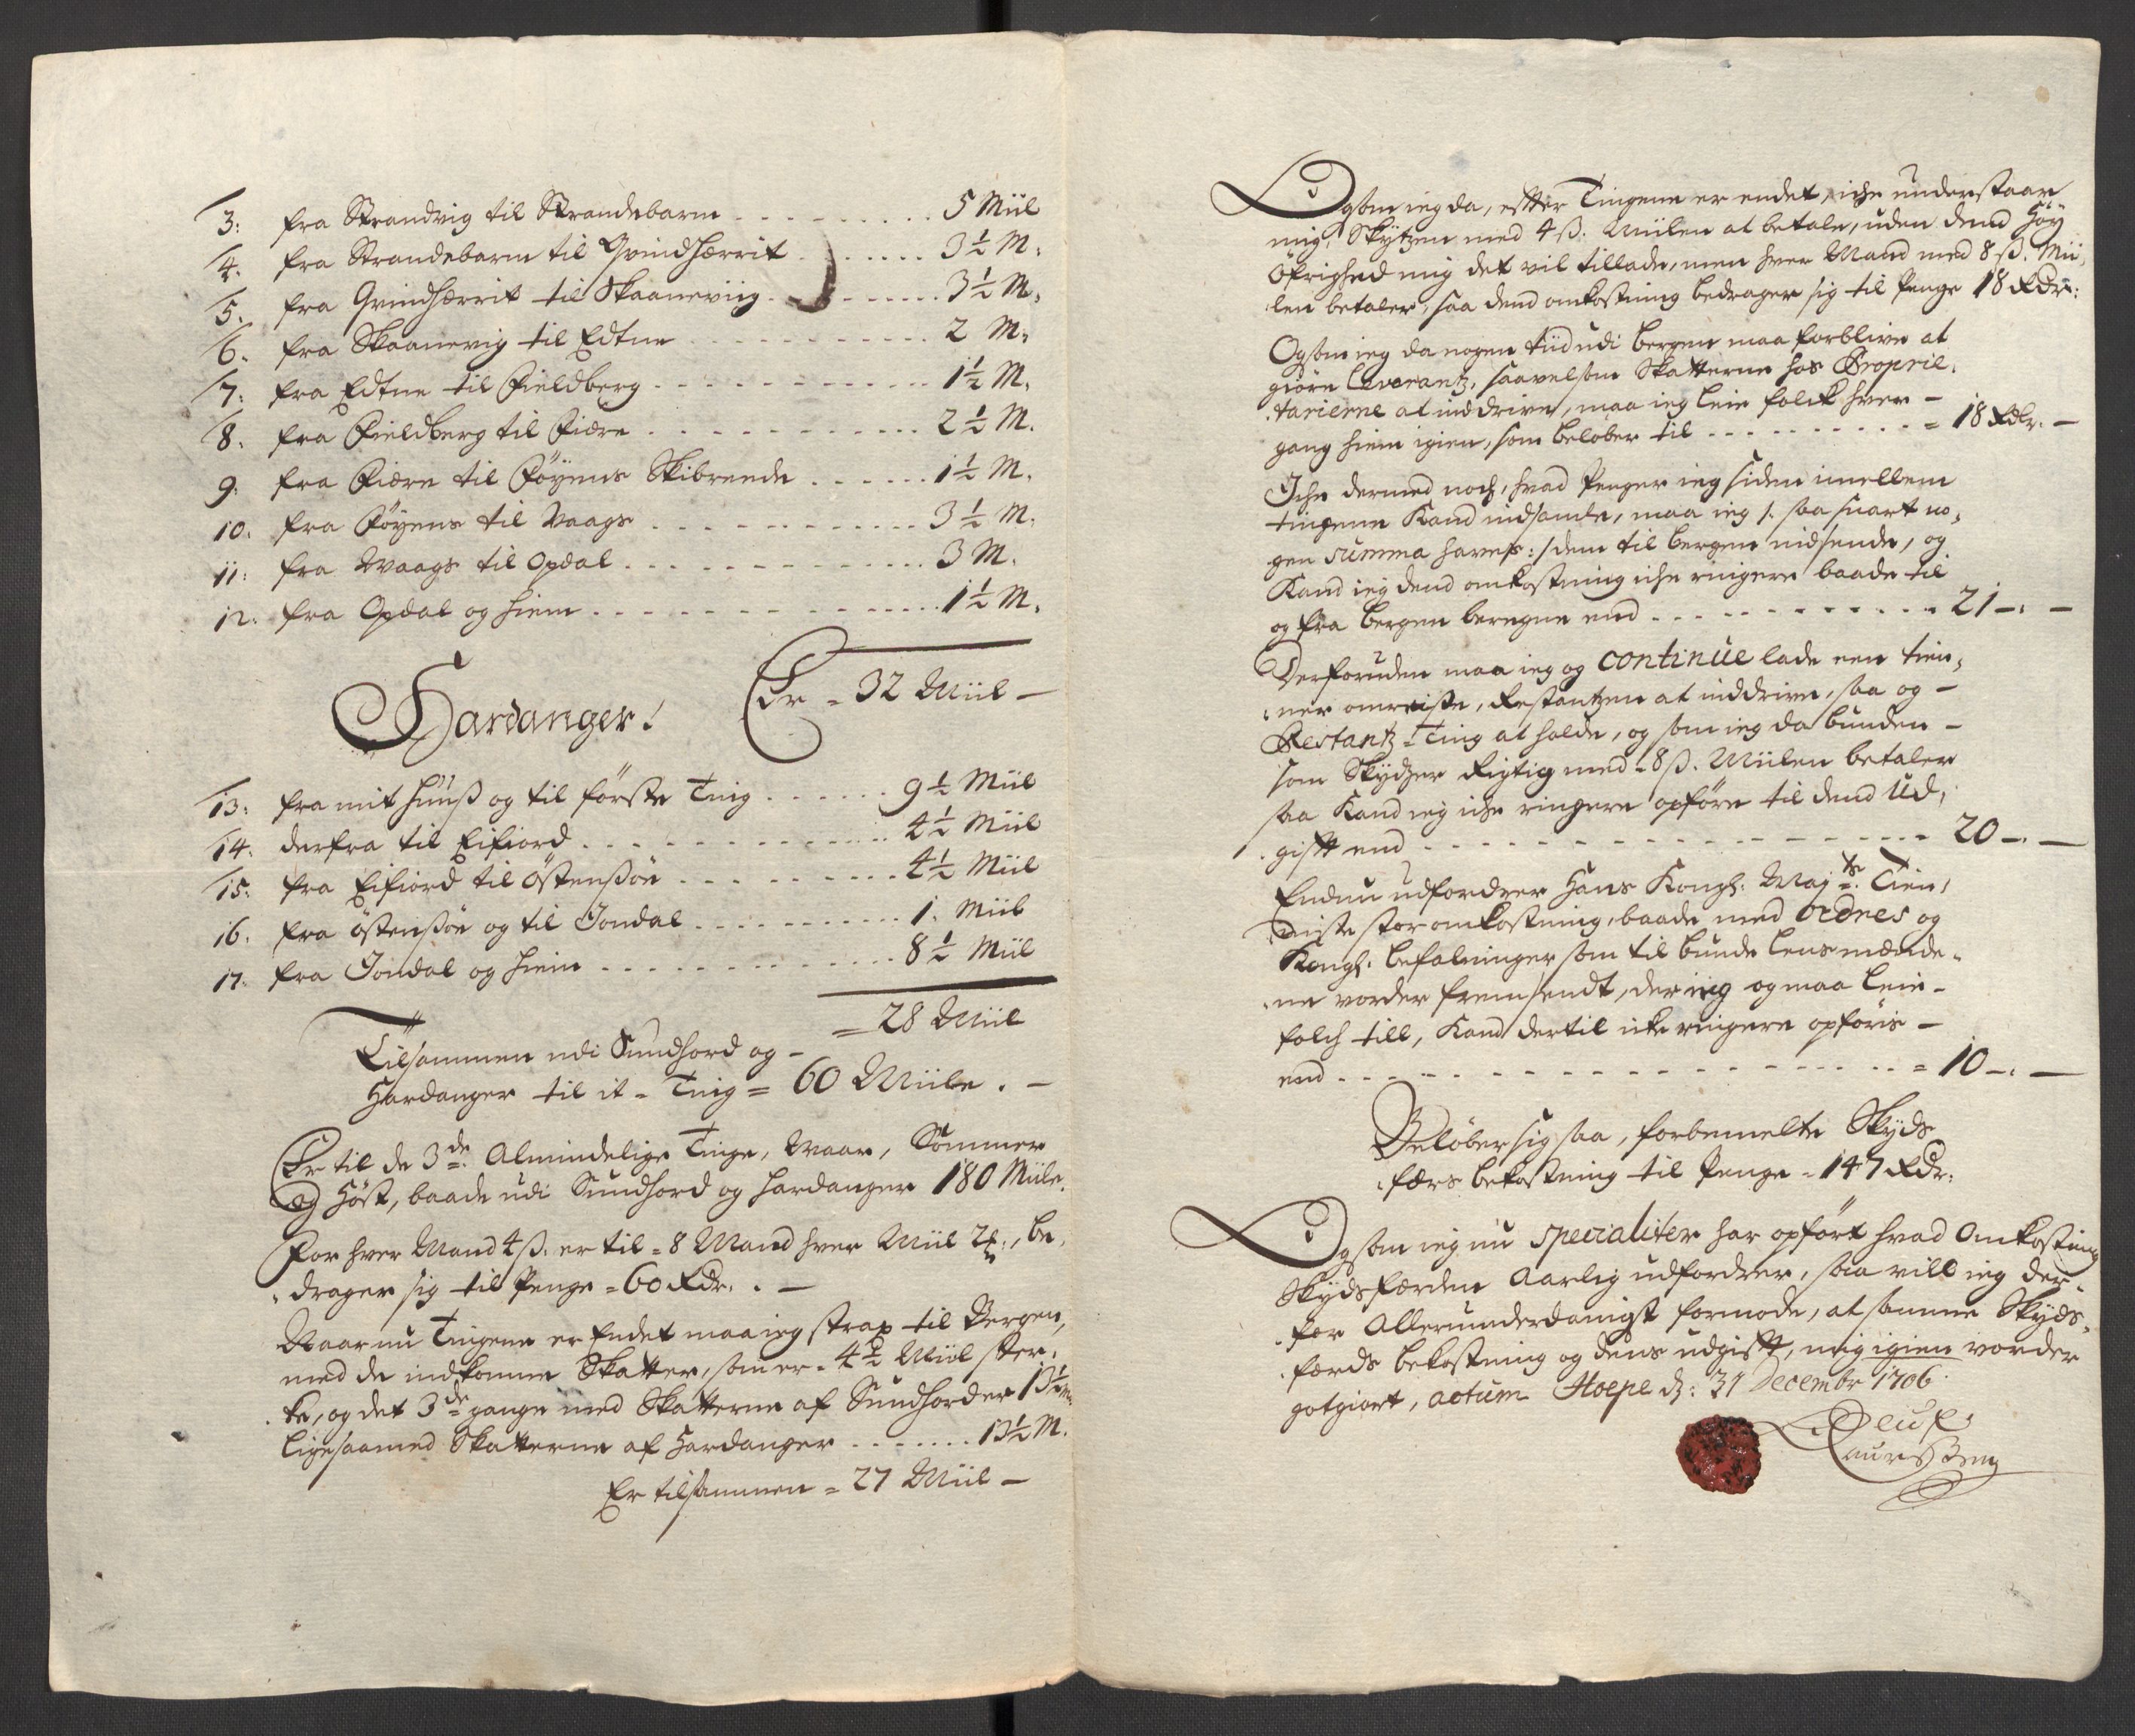 3: fra Strandvig til Strandebarm - - - - - - - - 5 Miil
4. fra Strandebarm til Qvindhærrit . - - - - - - 3½ M:
5. fra Qvindhærrit til Skaaneviig . - - - - - - 3½ M,
6. fra Skaanevig til Edtne - - - - - - - - - - - 2 M,
7: fra Edtne til Fieldberg - - - - - - - - - - - 1½ M,
8. fra Fieldberg til Fiære - - - - - - - - - - - 2½ M.
9: fra Fiære til Føyens Skibreede - - - - - - 1½ M.
10. fra Føyens til Vaags - - - - - - - - - - - - 3½ M.
11: fra Waags til Opdal - - - - - - - - - - - - 3 M.
12: fra Opdal og hiem - - - - - - - - - - - - - - 1½ M.
Er - 32 Miil -
Hardanger!
13: fra mit Huuß og til første Ting - - - - - 9½ Miil
14. derfra til Eifiord - - - - - - - - - - - - - 4½ Miil
15: fra Eifiord til Østenßøe - - - - - - - - - 4½ Miil
16. fra østenßøe og til Jondal - - - - - - - - - 1. Miil
17. fra Jondal og hiem - - - - - - - - - - - - - 8½ Miil
= 28 Miil
Tilsammen udi Sundhord og -
Hardanger til it - Ting = 60 Miile . -
Er til de 3de Almindelige Tinge, Waar, Sommer
og Høst, baade udi Sundhord og Hardanger 180 Miile.
For hver Mand 4 ß. er til = 8 Mand hver Miil 2 , be,
drager sig til Penge = 60 Rdr. . -
Naar nu Tingene er Endet maa ieg strax til Bergen,
med de indkomne Skatter, som er - 4½ Miil ster,
ke, og det 3de gange med Skatterne af Sundhorder 13½ m
ligesaa med Skatterne af Hardanger - - - - - - - 13½ M.
Er tilsammen = 27 Miil -
Og som ieg da, efter Tingene er endet, iche understaar
mig, Skytzen med 4 ß. Miilen at betale, uden dend Høy
Øfrighed mig det vil tillade, men hver Mand med 8 ß. Mii,
len betaler, saa dend omkostning bedrager sig til Penge 18 Rdr:
Og som ieg da nogen tiid udi Bergen maa forblive at
giøre Leverantz, saavelsom Skatterne hos Propriel,
tarierne at inddrive, maa ieg leie folck hver -
gang hiem igien, som beløber til - - - - - - - - - - = 18 Rdr. -
Iche dermed noch, hvad Penger ieg siden imellem
tingene Kand indsamle, maa ieg /: saa snart no,
gen summa hafves :/ dem til bergen nidsende, og
Kand ieg dend omkostning iche ringere baade til
og fra bergen beregne end - - - - - - - - - - - 21 -. -
Desforuden maa ieg og continue lade een tien,
ner omreiste, Restantzen at inddrive, saa og -
Restantz-Ting at holde, og som ieg da bunden -
som Skydzer Rigtig med - 8 ß. Miilen betaler
saa Kand ieg iche ringere opføre til dend Ud,
gifft end - - - - - - - - - - - - - - - - - - - 20 -. -
Endnu udfordrer Hans Kongl. Maj:ts Tien,
niste stor omkostning, baade med ordres og
Kongl. befalninger som til bunde lensmænde,
ne vorder fremsendt, der ieg og maa leie -
folch till, Kand dertil icke ringere opføris -
end - - - - - - - - - - - - - - - - - - - - - = 10 -. -
Beløber sig saa, forbemelte Skyds
færs bekostning til Penge = 147 Rdr.
Og som ieg nu specialiter har opført hvad omkosting
Skydsfærden Aarlig udfordrer, saa vill ieg der,
for Allerunderdanigst formode, at samme Skyds,
færds bekostning og dens udgifft, mig igien vorder
gotgiort, actum Hoepe d: 31 Decembr 1706.
Laurs